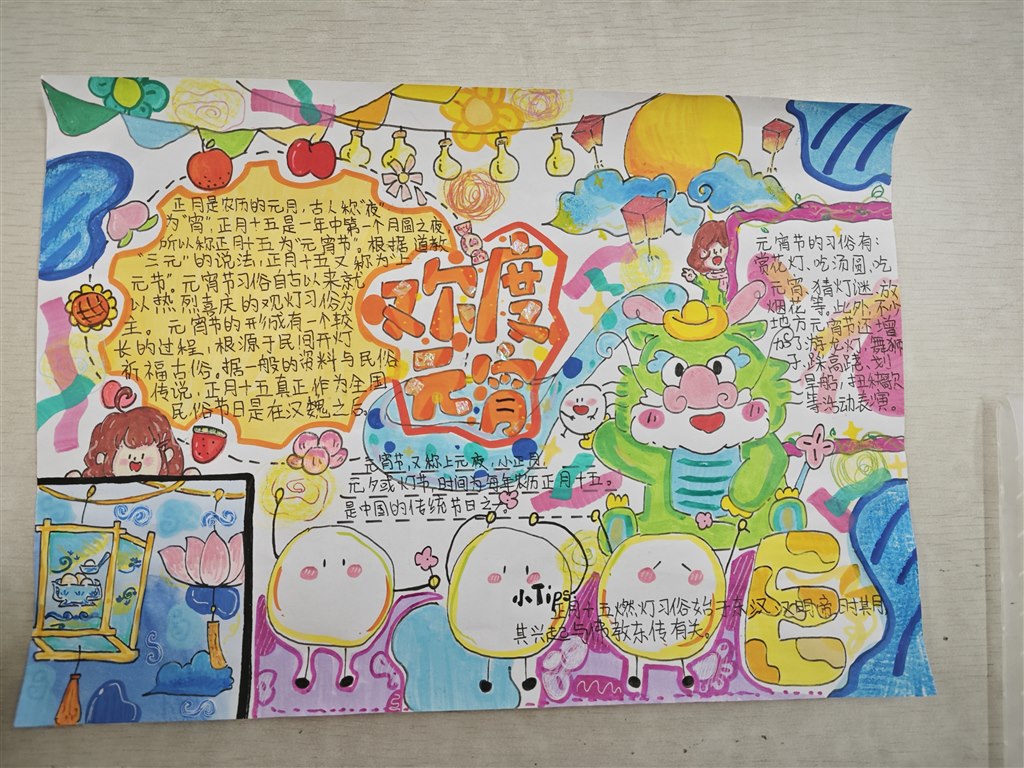 正月是农历的元月，古人称“夜”
为“宵”，正月十五是一年中第一个月圆之夜
所以称正月十五为“元宵节”。根据道教
“三元”的说法，正月十五又称为“上
元节”。元宵节习俗自古以来就
以热烈喜庆的观灯习俗为
主。元宵节的形成有一个较
长的过程，根源于民间开灯
祈福古俗。据一般的资料与民俗
传说，正月十五真正作为全国
民俗节日是在汉魏之后。
欢度
元宵
元宵节的习俗有：
赏花灯、吃汤圆、吃
元宵、猜灯谜、放
烟花等。此外不少
地方元宵节还增
加了游龙灯、舞狮
子、踩高跷、划
旱船、扭秧歌
等活动表演。
元宵节，又称上元夜，小正月，
元夕或灯节，时间为每年农历正月十五。
是中国的传统节日之一。
小Tips:
正月十五燃灯习俗始于东汉汉明帝时期，
其兴起与佛教东传有关。